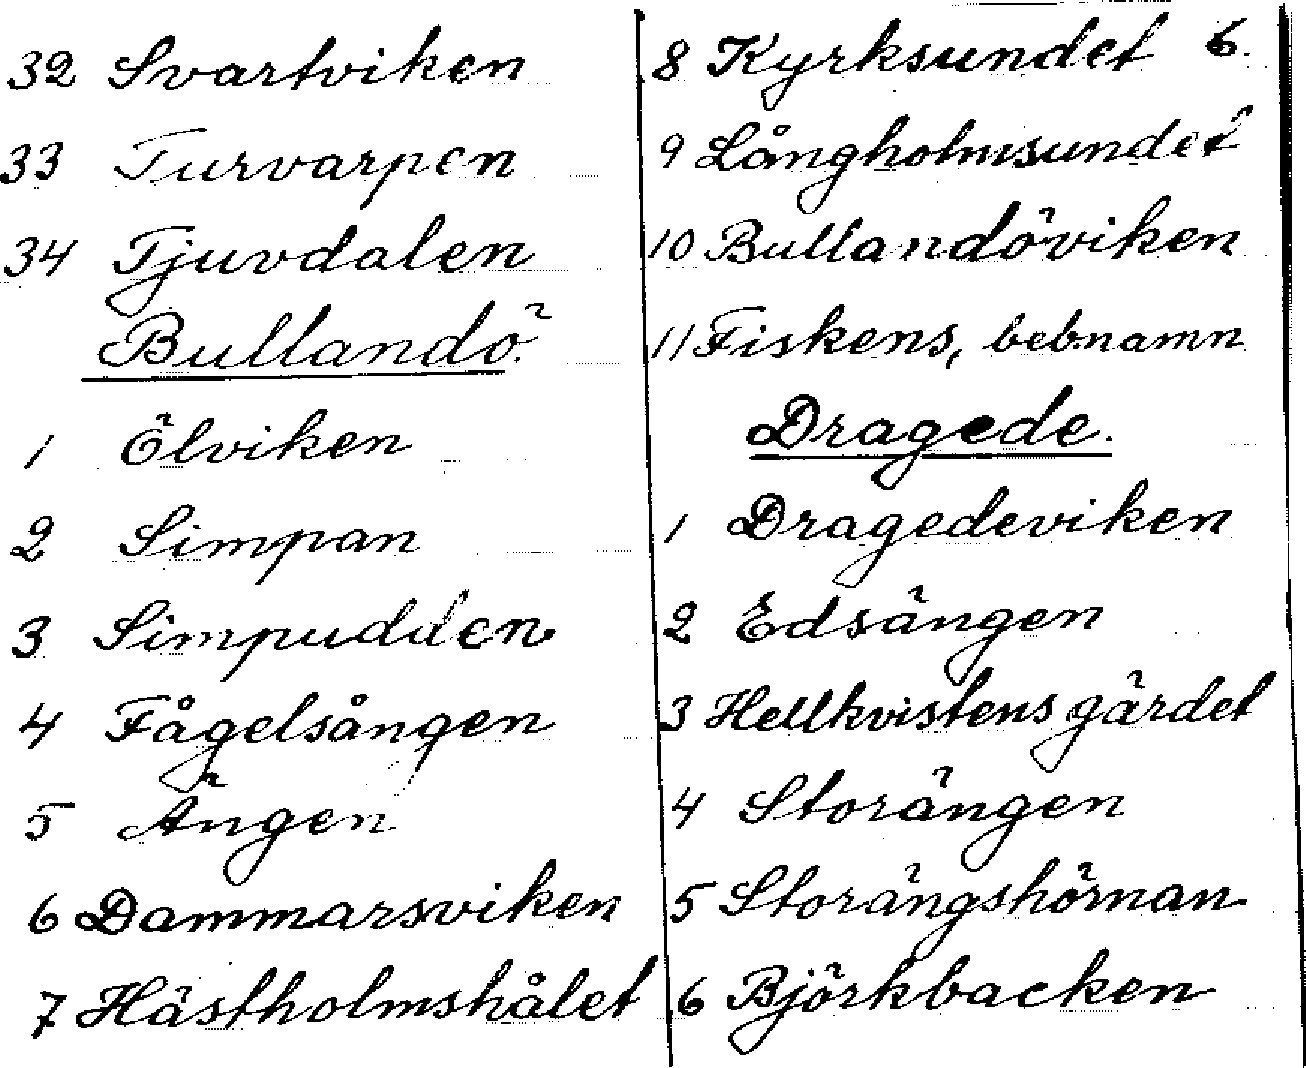 32 Svartviken
33 Turvarpen
34 Tjuvdalen
Bullandö.
1 Ölviken
2 Simpan
3 Simpudden
4 Fågelsången
5 Ängen
6 Dammarsviken
7 Hästholmshålet
6.
8 Kyrksundet
9 Långholmsundet
10 Bullandöviken
11 Fiskens, bebnamn
Dragede.
1 Dragedeviken
2 Edsängen
3 Hellkvistens gärdet
4 Storängen
5 Storängshörnan
6 Björkbacken